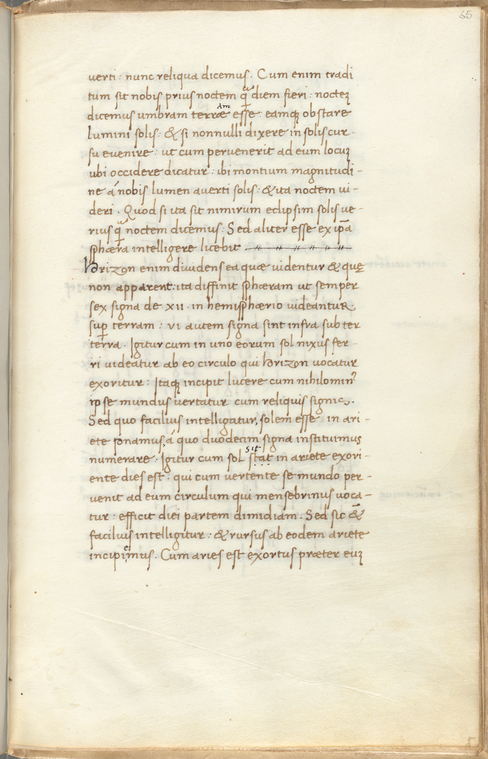 65
verti : nunc reliqua dicemus. Cum enim tradi
tum sit nobis prius noctem q̃ diem fieri : noctẽ
dicemus umbram terræ esse eamq; obstare
am
lumini solis : & si nonnulli dixere in solis cur-
su evenire : ut cum pervenerit ad eum locuʒ
ubi occidere dicatur : ibi montium magnitudi-
ne a nobis lumen averti solis : & ita noctem vi-
deri . Quod si ita sit nimirum eclipsim solis ve-
rius q̃ noctem dicemus. Sed aliter esse ex ip̃a
sphæra intelligere licebit
Horizon enim dividens ea quæ videntur & quę
non apparent : ita diffinit sphæram ut semper
sex signa de xii in hemisphærio videantur
sup̱ terram : vi autem signa sint infra subter
terra . Igitur cum in uno eorum sol nixus fer-
ri videatur ab eo circulo qui horizon vocatur
exoritur : Itaq; incipit lucere cum nihilomin⁹
ipse mundus vertatur cum reliquis signis.
Sed quo facilius intelligatur, solem esse in ari-
ete ponamus, a quo duodecim signa instituimus
numerare . Igitur cum sol stat in ariete exori-
sit
ente dies est : qui cum vertente se mundo per-
venit ad eum circulum qui mesembrinus voca-
tur : efficit diei partem dimidiam. Sed sic &
facilius intelligitur : & rursus ab eodem ariete
incipimus. Cum aries est exortus præter euʒ